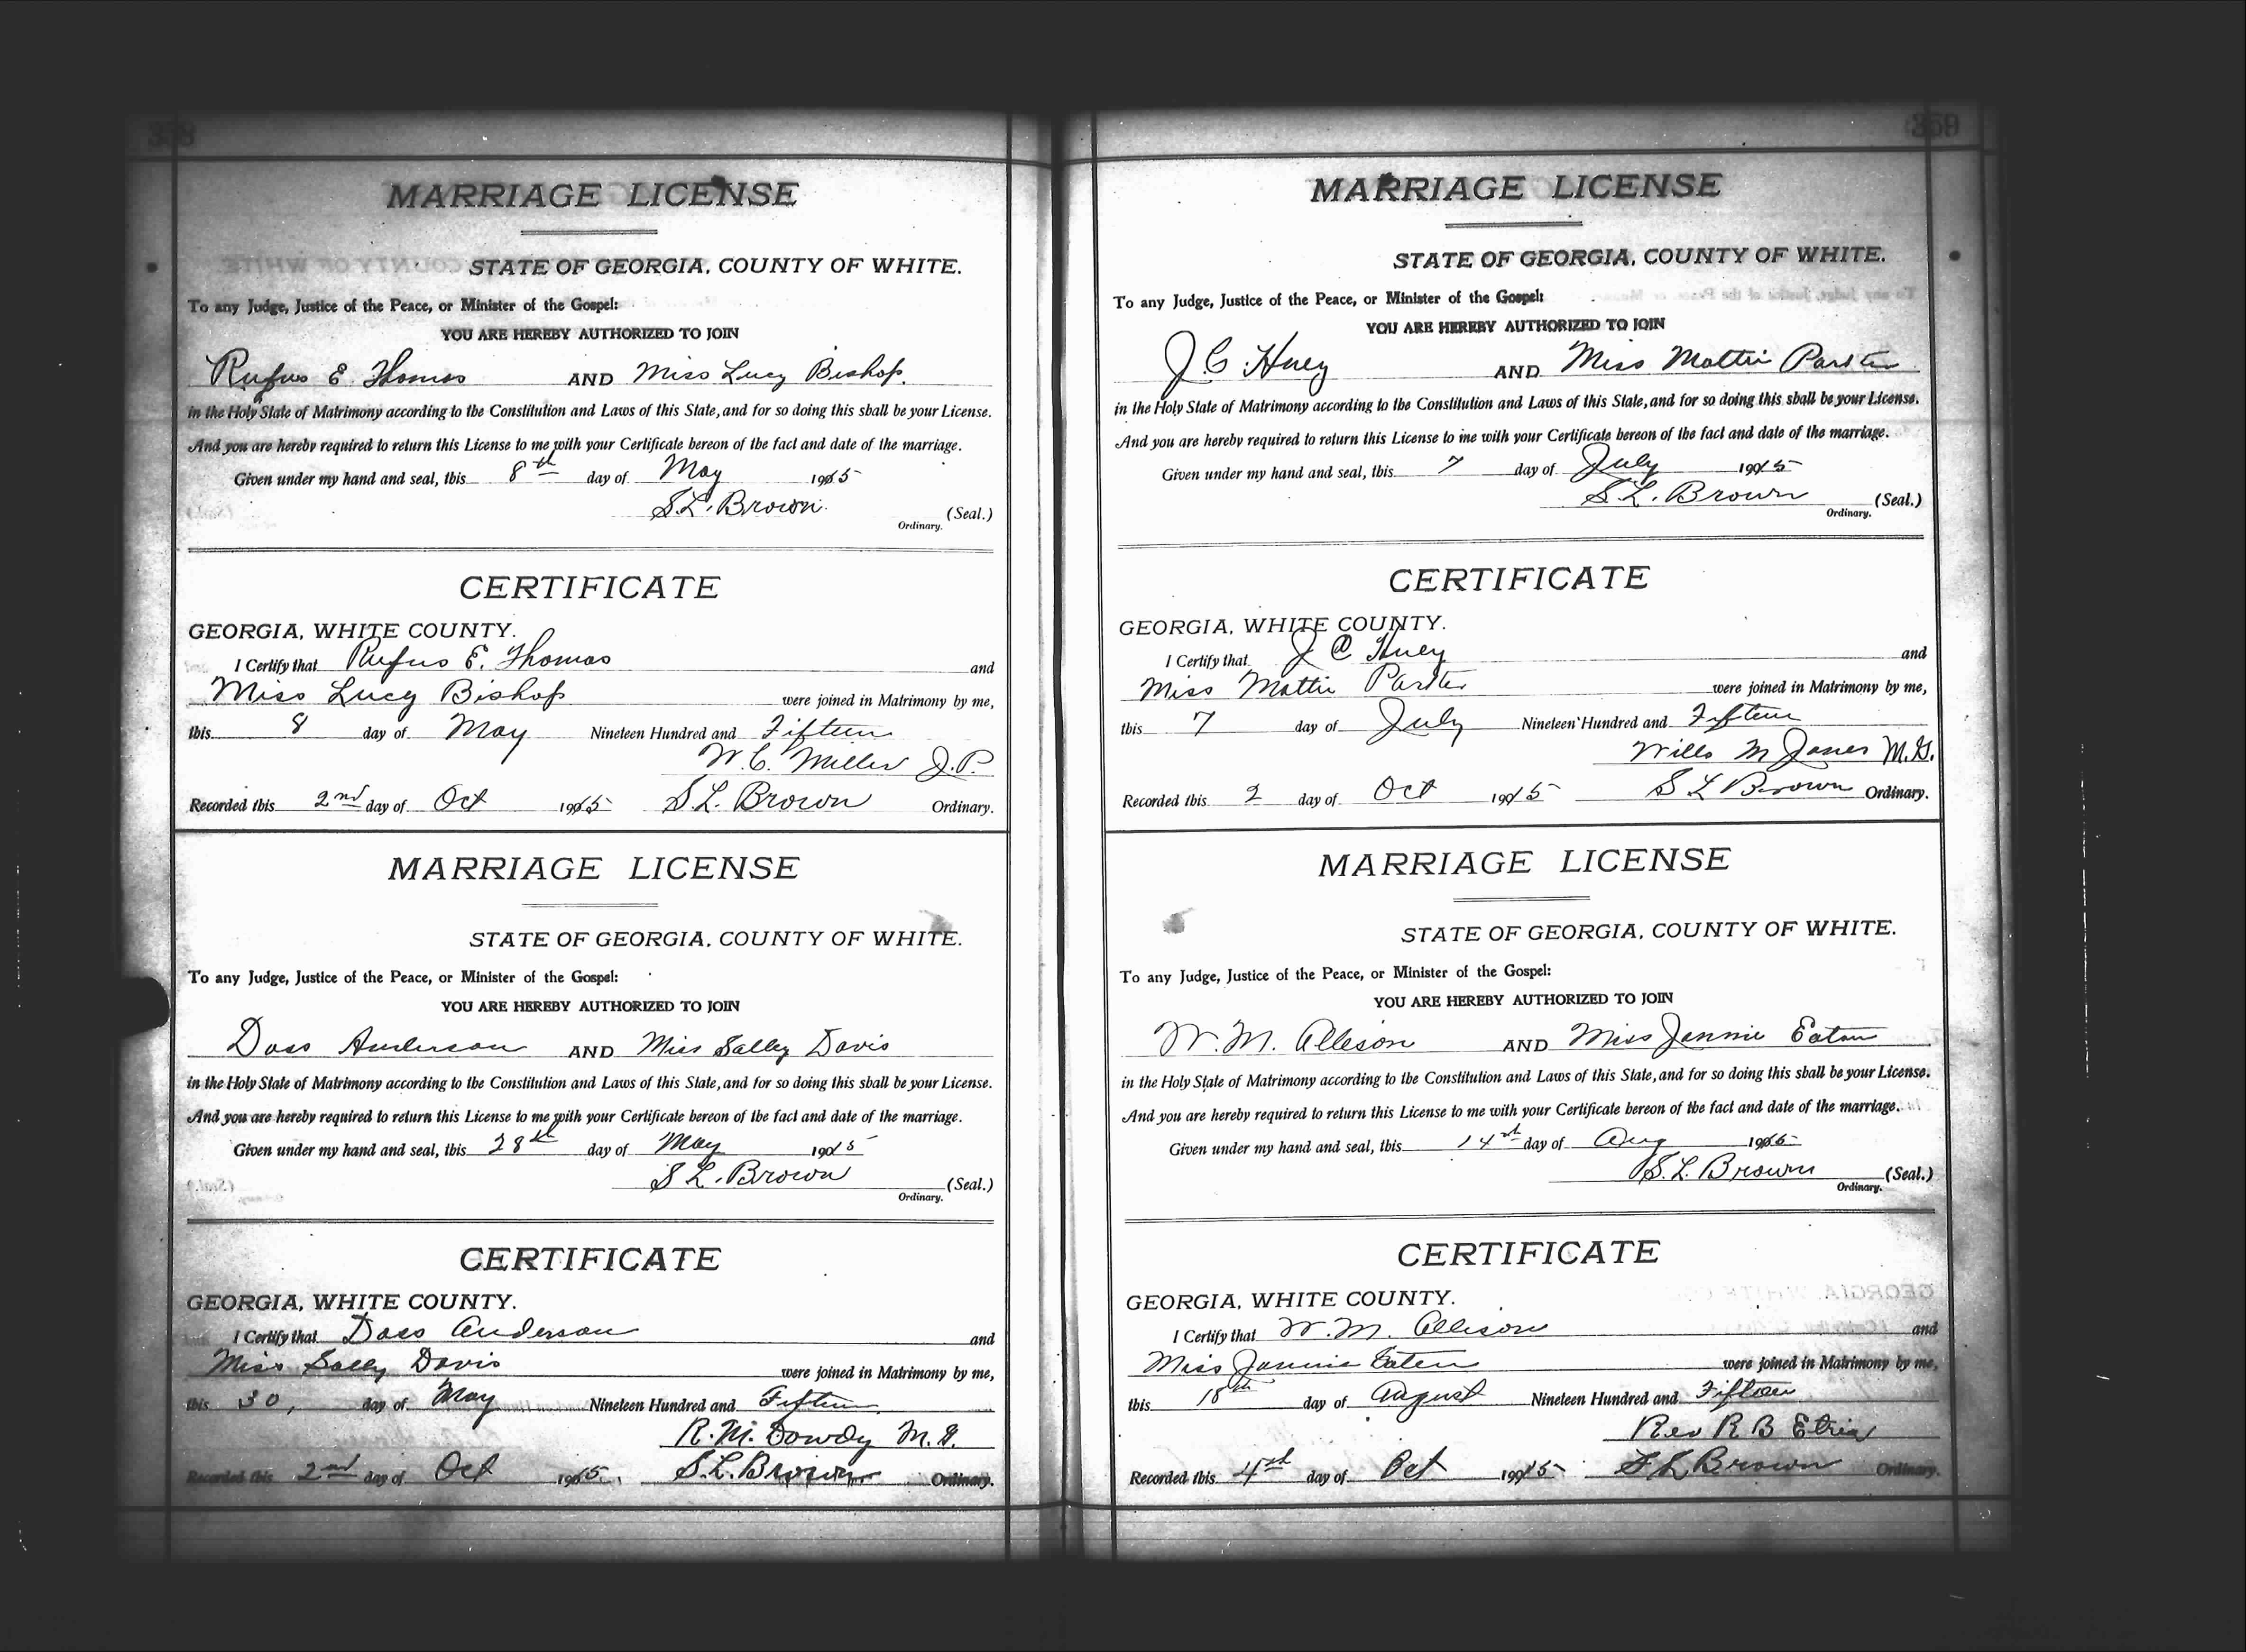 358
MARRIAGE LICENSE
STATE OF GEORGIA, COUNTY OF WHITE.
To any Judge, Justice of the Peace, or Minister of the Gospel:
YOU ARE HEREBY AUTHORIZED TO JOIN
Rufus E Thomas AND Miss Lucy Bishop.
in the Holy State of Matrimony according to the Constitution and Laws of this State, and for so doing this shall be your License.
And you are hereby required to return this License to me with your Certificate hereon of the fact and date of the marriage.
Given under my hand and seal, this 8th day of May 1915
S.L. Brown. (Seal.)
Ordinary.
CERTIFICATE
GEORGIA, WHITE COUNTY.
I Certify that Rufus E. Thomas and
Miss Lucy Bishop were joined in Matrimony by me,
this 8 day of May Nineteen Hundred and Fifteen
W.C. Miller J.P.
Recorded this 2nd day of Oct 1915 S.L. Brown Ordinary.
MARRIAGE LICENSE
STATE OF GEORGIA, COUNTY OF WHITE.
To any Judge, Justice of the Peace, or Minister of the Gospel:
YOU ARE HEREBY AUTHORIZED TO JOIN
Doss Anderson AND Miss Salley Davis
in the Holy State of Matrimony according to the Constitution and Laws of this State, and for so doing this shall be your License.
And you are hereby required to return this License to me with your Certificate hereon of the fact and date of the marriage.
Given under my hand and seal, this 28th day of May 1915
S L. Brown (Seal.)
Ordinary.
CERTIFICATE
GEORGIA, WHITE COUNTY.
I Certify that Doss Anderson and
Miss Sally Davis were joined in Matrimony by me,
this 30, day of May Nineteen Hundred and Fifteen
R.M. Dowdy M.G.
Recorded this 2nd day of Oct 1915, S.L. Brown Ordinary.
359
MARRIAGE LICENSE
STATE OF GEORGIA, COUNTY OF WHITE.
To any Judge, Justice of the Peace, or Minister of the Gospel:
YOU ARE HEREBY AUTHORIZED TO JOIN
J.C. Huey AND Miss Mattie
in the Holy State of Matrimony according to the Constitution and Laws of this State, and for so doing this shall be your License.
And you are hereby required to return this License to me with your Certificate hereon of the fact and date of the marriage.
Given under my hand and seal, this 7 day of July 1915
S L. Brown (Seal.)
Ordinary.
CERTIFICATE
GEORGIA, WHITE COUNTY.
I Certify that J C Huey and
Miss Mattie were joined in Matrimony by me,
this 7 day of July Nineteen Hundred and Fifteen
Wills M Jones M.G.
Recorded this 2 day of Oct 1915 S L Brown Ordinary.
MARRIAGE LICENSE
STATE OF GEORGIA, COUNTY OF WHITE.
To any Judge, Justice of the Peace, or Minister of the Gospel:
YOU ARE HEREBY AUTHORIZED TO JOIN
W.M. Alleson AND Miss Jannie Eaton
in the Holy State of Matrimony according to the Constitution and Laws of this State, and for so doing this shall be your License.
And you are hereby required to return this License to me with your Certificate hereon of the fact and date of the marriage.
Given under my hand and seal, this 14th day of Aug 1915
S.L. Brown (Seal.)
Ordinary.
CERTIFICATE
GEORGIA, WHITE COUNTY.
I Certify that W.M. Allison and
Miss Jannie Eaten were joined in Matrimony by me,
this day of August Nineteen Hundred and Fifteen
Rev R B
Recorded this 4th day of Oct 1915 S L Brown Ordinary.